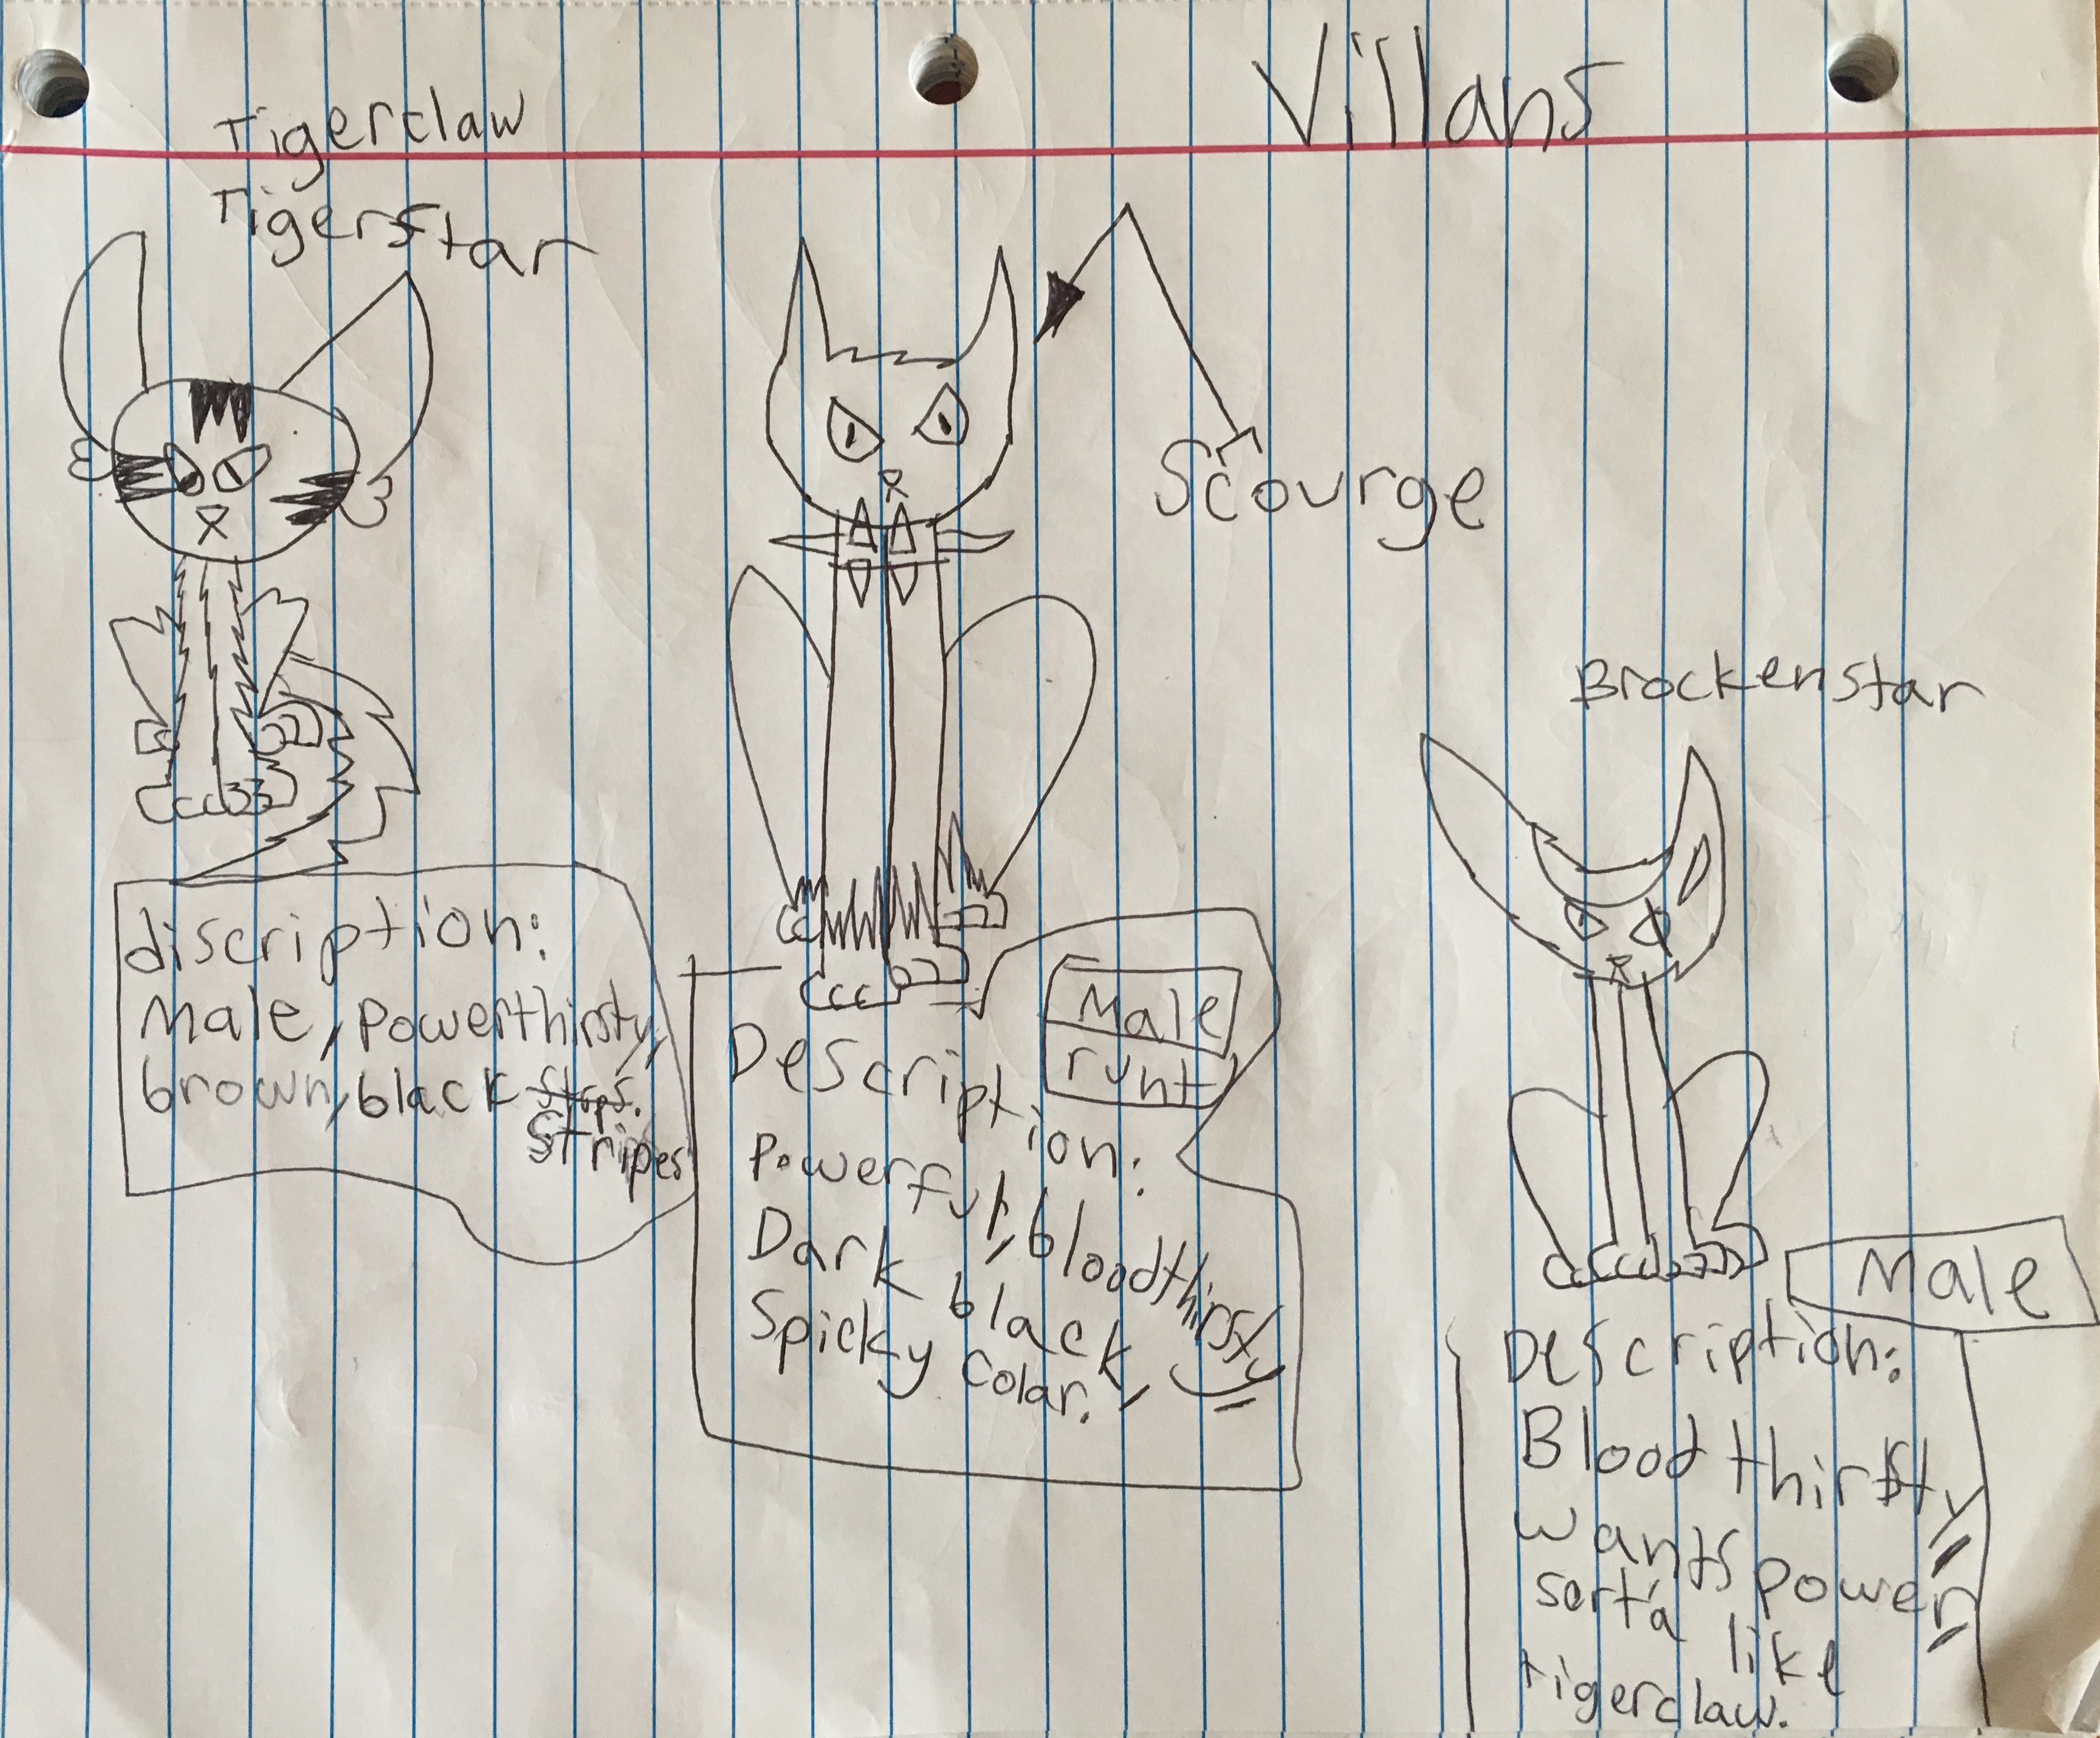 Villans
Tigerclaw
Tigerstar
discription:
Male, Powerthirsty,
brown, black strps.
stripes
Scourge
Male
runt
Description:
Powerful, bloodthirsty,
Dark black,
Spicky Colar.
Brockenstar
Male
Description:
Blood thirsty,
wants power,
sorta like
tigerclaw.